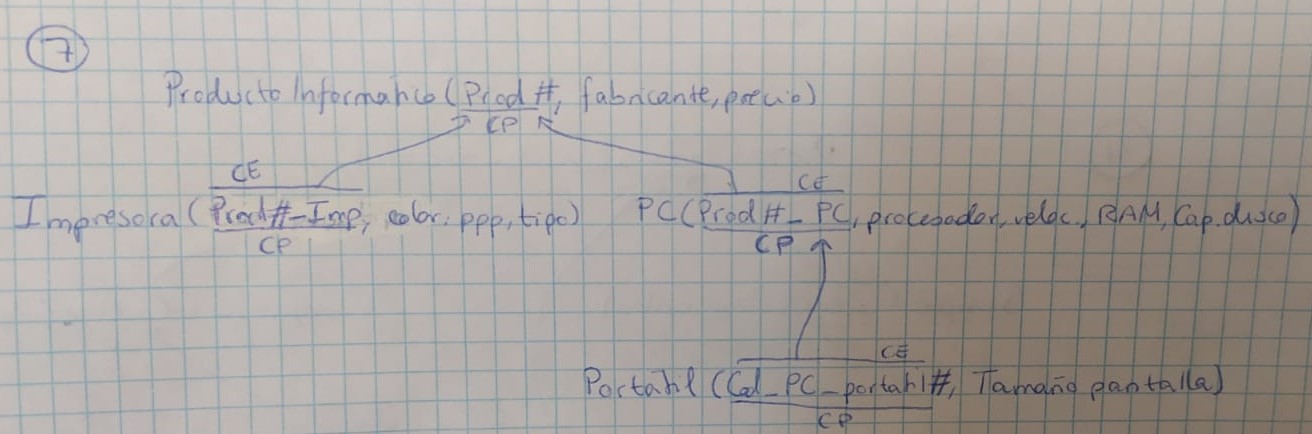 7
Producto Informatico (Prod #, fabricante, precio)
CP
CE
CE
Impresora (Prod#-Imp, color, ppp, tipo) PC (Prod #_PC, procesador, veloc., RAM, Cap. disco)
CP
CP
CE
Portatil (Cod_PC_portatil#, Tamaño pantalla)
CP